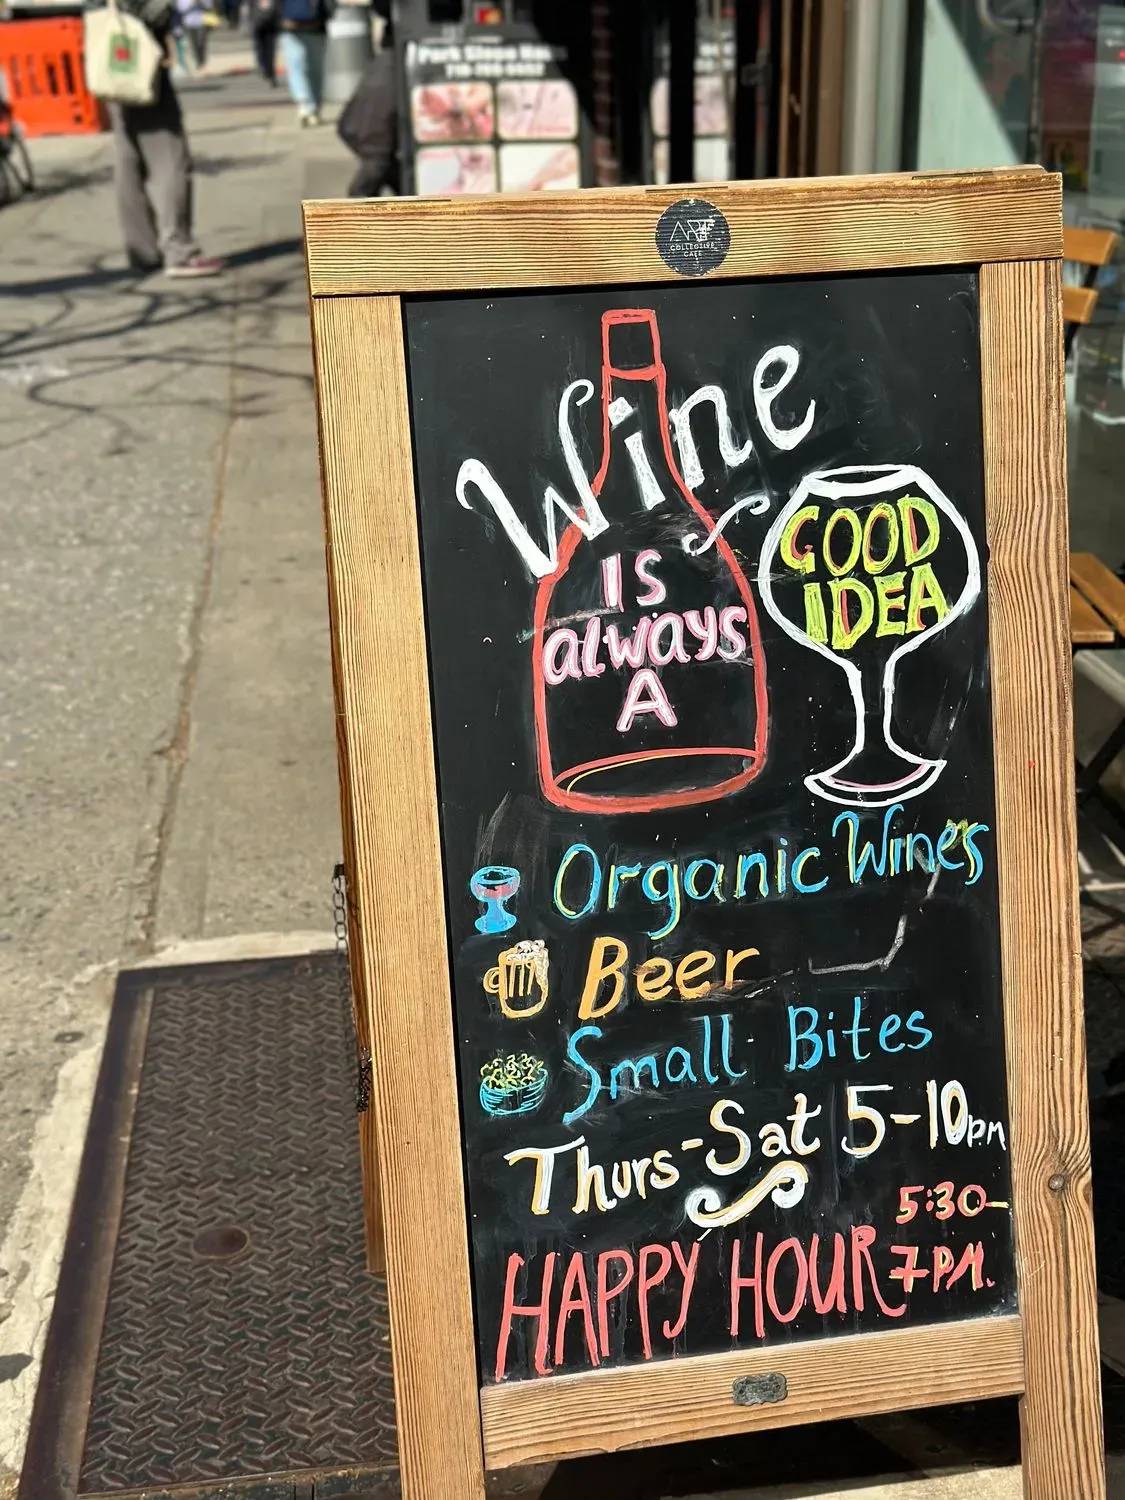 Park Slope
ART
COLLECTIVE
CAFE
Wine
IS
always
A
GOOD
IDEA
Organic Wines
Beer
Small Bites
Thurs-Sat 5-10pm
HAPPY HOUR 5:30-
7PM.